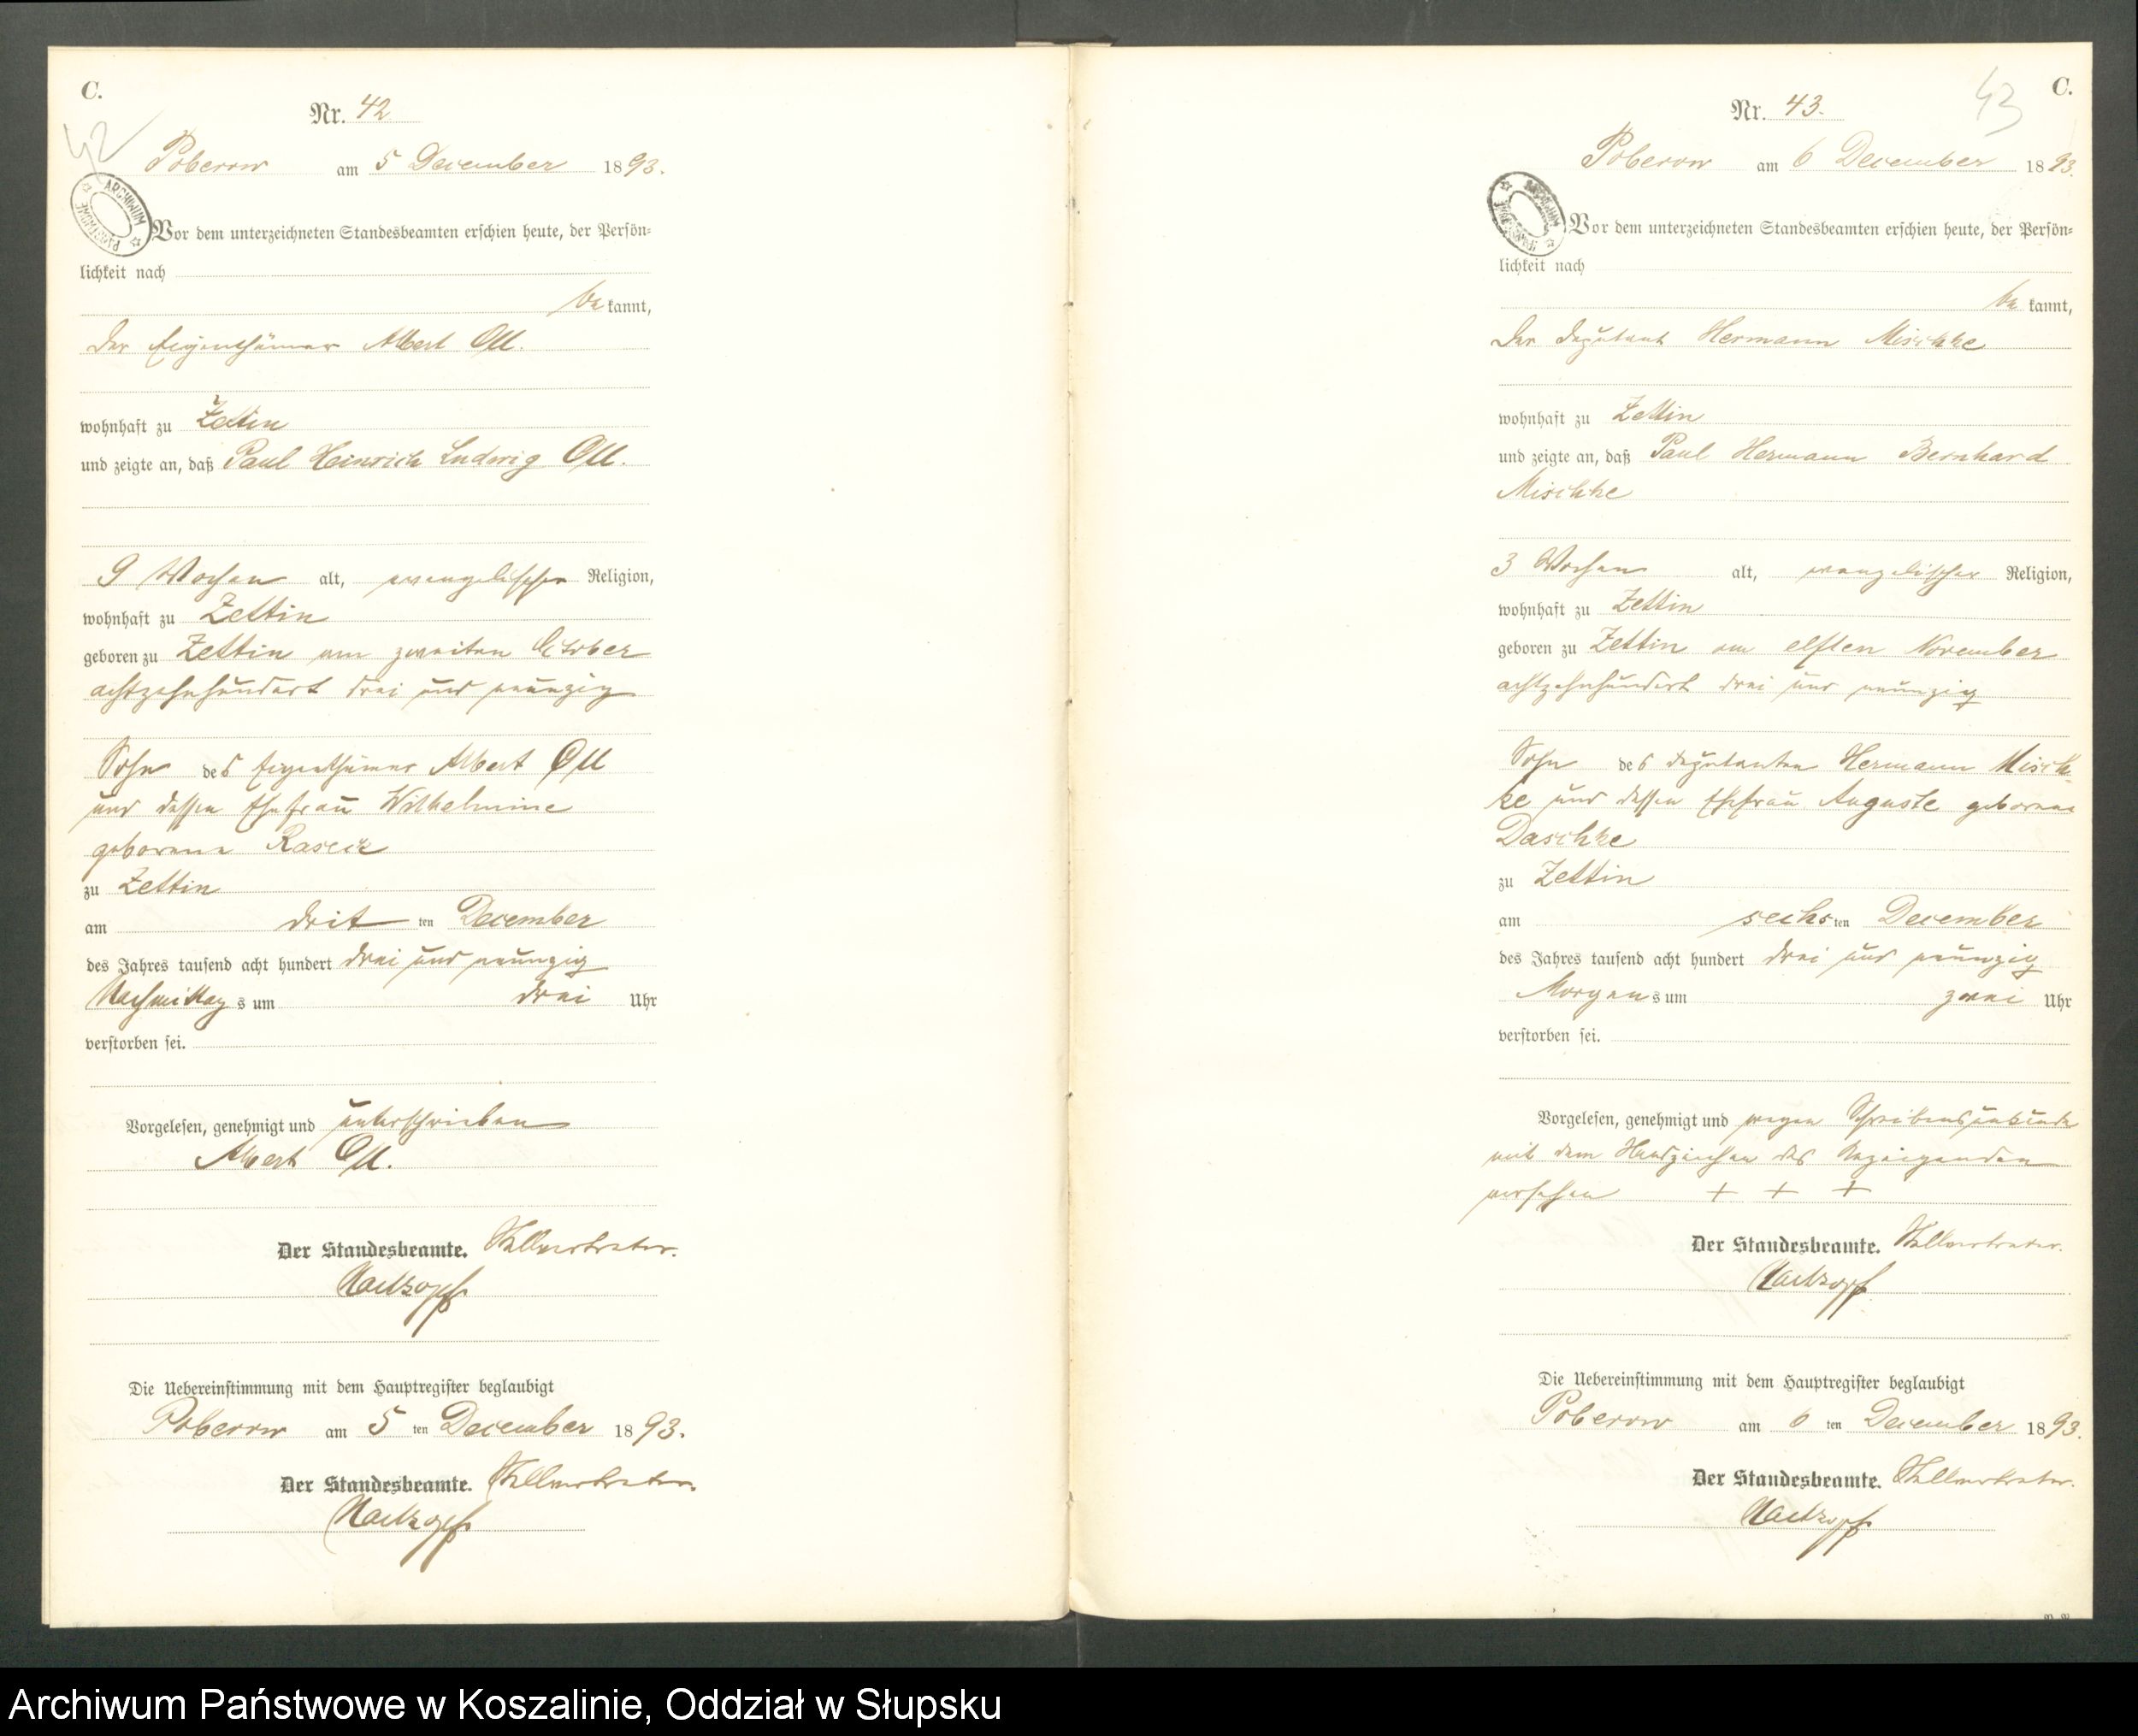 C.
Nr. 42
42
Poberow am 5 December 1893.
ARCHIWUM PAŃSTWOWE
Vor dem unterzeichneten Standesbeamten erschien heute, der Persön-
lichkeit nach
be kannt,
der Eigenthümer Albert Ott.
wohnhaft zu Zettin
und zeigte an, daß Paul Heinrich Ludwig Ott.
9 Wochen alt, evangelischer Religion,
wohnhaft zu Zettin
geboren zu Zettin am zweiten October
achtzehnhundert drei und neunzig
Sohn des Eigenthümer Albert Ott
und dessen Ehefrau Wilhelmine
geborene
zu Zettin
am dritten December
des Jahres tausend acht hundert drei und neunzig
Nachmittags um drei Uhr
verstorben sei.
Vorgelesen, genehmigt und unterschrieben
Albert Ott.
Der Standesbeamte. Stellvertreter.
Die Uebereinstimmung mit dem Hauptregister beglaubigt
Poberow am 5 ten December 1893.
Der Standesbeamte. Stellvertreter.
C.
43
Nr. 43.
Poberow am 6 December 1893.
ARCHIWUM PAŃSTWOWE
Vor dem unterzeichneten Standesbeamten erschien heute, der Persön-
lichkeit nach
be kannt,
der Deputant Hermann Mischke
wohnhaft zu Zettin
und zeigte an, daß Paul Hermann Bernhard
Mischke
3 Wochen alt, evangelischer Religion,
wohnhaft zu Zettin
geboren zu Zettin am elften November
achtzehnhundert drei und neunzig
Sohn des Deputanten Hermann Misch-
ke und dessen Ehefrau Auguste geborene
Daschke
zu Zettin
am sechsten December
des Jahres tausend acht hundert drei und neunzig
Morgens um zwei Uhr
verstorben sei.
Vorgelesen, genehmigt und wegen Schreibensunkunde
mit dem Handzeichen des Anzeigenden
versehen + + +
Der Standesbeamte. Stellvertreter.
Die Uebereinstimmung mit dem Hauptregister beglaubigt
Poberow am 6 ten December 1893.
Der Standesbeamte. Stellvertreter.
Archiwum Państwowe w Koszalinie, Oddział w Słupsku